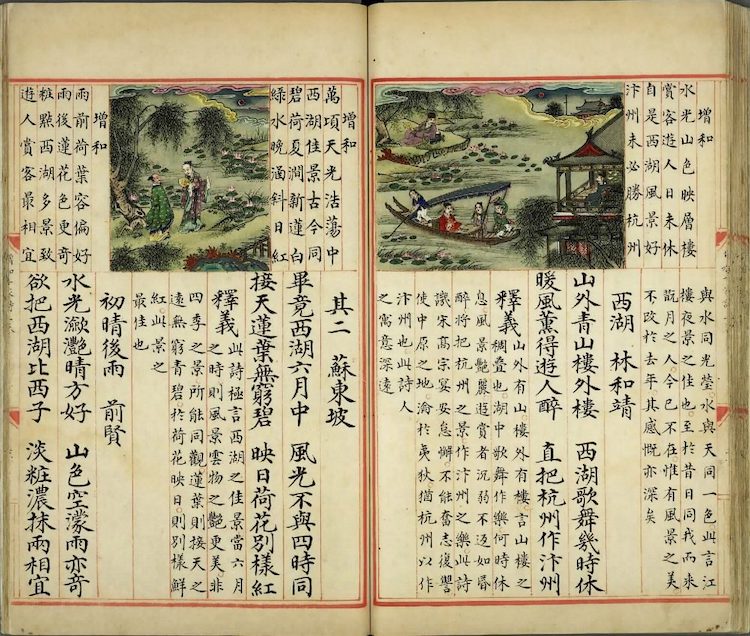 增和
水光山色映層樓
賞客遊人日未休
自是西湖風景好
汴州未必勝杭州
與水同光瑩水與天同一色此言江
樓夜景之佳也至於昔日同我而來
翫月之人今已不在惟有風景之美
不改於去年其感慨亦深矣
西湖 林和靖
山外青山樓外樓 西湖歌舞幾時休
暖風薰得遊人醉 直把杭州作汴州
釋義 山外有山樓外有樓言山樓之
稠疊也湖中歌舞作樂何時休
息風景艷麗遊賞者沉不如昏
醉將把杭州之景作汴州之樂此詩
譏宋高宗宴安怠懈不能奮志復讐
使中原之地淪於夷狄猶杭州以作
汴州也此詩人
之寓意深遠
增和
萬頃天光蕩中
西湖佳景古今同
碧荷夏澗新蓮白
緑水晚涵斜日紅
增和
雨前荷葉容偏好
雨後蓮花色更奇
粧點西湖多景致
遊人賞客最相宜
其二 蘇東坡
畢竟西湖六月中 風光不與四時同
接天蓮葉無窮碧 映日荷花別樣紅
釋義 此詩極言西湖之佳景當六月
之時則風景雲物之艷更美非
四季之景所能同觀蓮葉則接天之
遠無窮青碧於荷花映日則別樣鮮
紅此景之
最佳也
初晴後雨 前賢
水光瀲灩晴方好 山色空濛雨亦奇
欲把西湖比西子 淡粧濃抹兩相宜